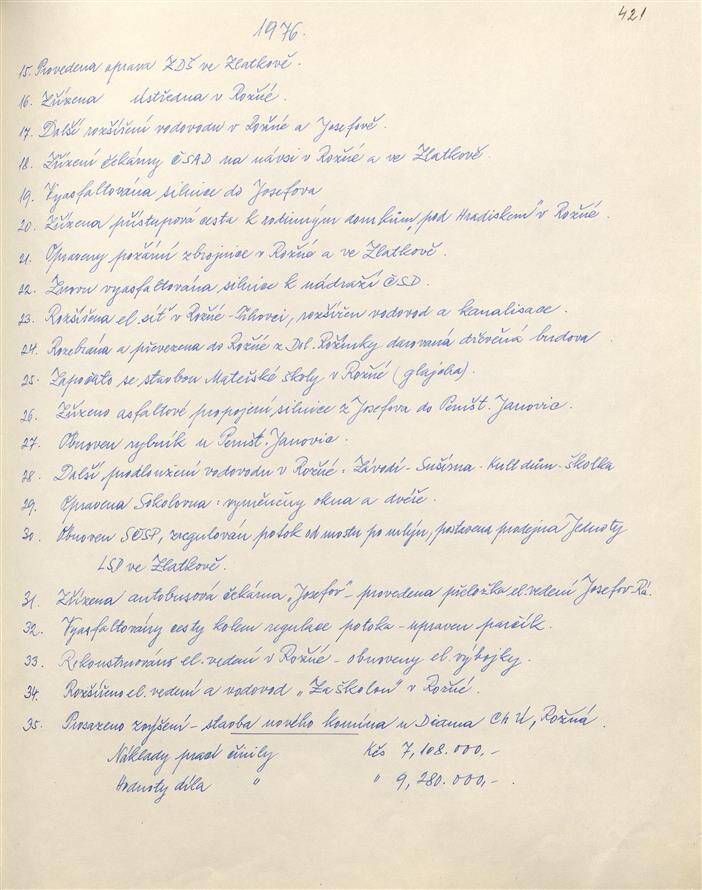 421
1976.
15. Provedena oprava ZDŠ ve Zlatkově.
16. Zřízena ústředna v Rožné.
17. Další rozšíření vodovodu v Rožné a Josefově.
18. Zřízení čekárny ČSAD na návsi v Rožné a ve Zlatkově.
19. Vyasfaltována silnice do Josefova
20. Zřízena přístupová cesta k rodinným domkům „pod Hradiskem" v Rožné.
21. Opraveny požární zbrojnice v Rožné a ve Zlatkově.
22. Znovu vyasfaltována silnice k nádraží ČSD.
23. Rozšířena el. síť v Rožné - , rozšířen vodovod a kanalisace.
24. Rozebrána a převezena do Rožné z Dol. Rožínky darovaná dřevěná budova.
25. Započato se stavbou Mateřské školy v Rožné (glajcha).
26. Zřízeno asfaltové propojení silnice z Josefova do Pernšt. Janovic.
27. Obnoven rybník u Pernšt. Janovic.
28. Další prodloužení vodovodu v Rožné: Závodí - Sušírna - Kult dům - školka
29. Opravena Sokolovna: vyměněny okna a dveře.
30. Obnoven , zregulován potok od mostu po mlýn, postavena prodejna Jednoty
LSD ve Zlatkově.
31. Zřízena autobusová čekárna „Josefov" - provedena přeložka el. vedení Josefov-Rá.
32. Vyasfaltovány cesty kolem regulace potoka - upraven parčík.
33. Rekonstruováno el. vedení v Rožné - obnoveny el. výbojky.
34. Rozšířeno el. vedení a vodovod „Za školou" v Rožné.
35. Prosazeno zvýšení - stavba nového komína u Diama CHÚ, Rožná.
Náklady prací činily Kčs 7,108.000,-
Hodnoty díla " " 9,280.000,-.